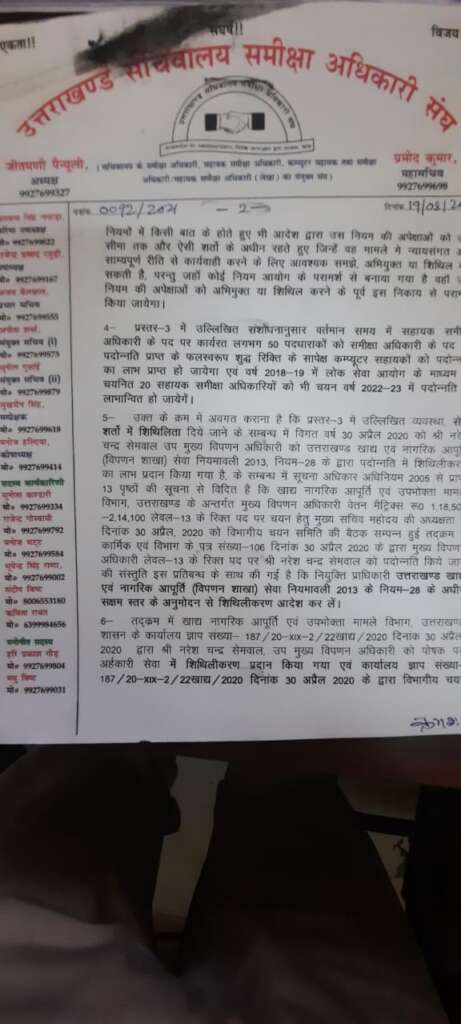 एकता!!
संघर्ष!!
विजय
उत्तराखण्ड सचिवालय समीक्षा अधिकारी संघ
जीतमणी पैन्यूली,
अध्यक्ष
9927699327
(सचिवालय के समीक्षा अधिकारी, सहायक समीक्षा अधिकारी, कम्प्यूटर सहायक तथा समीक्षा
अधिकारी/सहायक समीक्षा अधिकारी (लेखा) का संयुक्त संघ)
प्रमोद कुमार,
महासचिव
9927699698
पत्रांक. 0092/2021 - 2 -
दिनांक. 19/08/20
वरिष्ठ उपाध्यक्ष
मो० 9927699822
उपाध्यक्ष
मो० 9927699167
प्रचार सचिव
मो० 9927699555
संयुक्त सचिव (i)
मो० 9927699573
संयुक्त सचिव (ii)
मो० 9927699879
सुखदेव सिंह,
संप्रेक्षक
मो० 9927699618
कोषाध्यक्ष
मो० 9927699414
सदस्य कार्यकारिणी
मो० 9927699334
राजेन्द्र गोस्वामी
मो० 9927699792
मनोज भट्ट
मो० 9927699584
मो० 9927699002
संदीप बिष्ट
मो० 8006553180
कविता रावत
मो० 6399984656
मनोनीत सदस्य
हरि प्रकाश गौड़
मो० 9927699804
मधु बिष्ट
मो० 9927699031
नियमों में किसी बात के होते हुए भी आदेश द्वारा उस नियम की अपेक्षाओं को उ
सीमा तक और ऐसी शर्तो के अधीन रहते हुए जिन्हें वह मामले में न्यायसंगत अ
साम्यपूर्ण रीति से कार्यवाही करने के लिए आवश्यक समझे, अभियुक्त या शिथिल व
सकती है, परन्तु जहाँ कोई नियम आयोग के परामर्श से बनाया गया है वहाँ उ
नियम की अपेक्षाओं को अभियुक्त या शिथिल करने के पूर्व इस निकाय से पराम
किया जायेगा।
4— प्रस्तर-3 में उल्लिखित संशोधनानुसार वर्तमान समय में सहायक समी
अधिकारी के पद पर कार्यरत लगभग 50 पदधारकों को समीक्षा अधिकारी के पद
पदोन्नति प्राप्त के फलस्वरूप शुद्ध रिक्ति के सापेक्ष कम्प्यूटर सहायकों को पदोन्न
का लाभ प्राप्त हो जायेगा एवं वर्ष 2018-19 में लोक सेवा आयोग के माध्यम
चयनित 20 सहायक समीक्षा अधिकारियों को भी चयन वर्ष 2022-23 में पदोन्नति
लाभान्वित हो जायेगें।
5— उक्त के क्रम में अवगत कराना है कि प्रस्तर-3 में उल्लिखित व्यवस्था, से
शर्तो में शिथिलिता दिये जाने के सम्बन्ध में विगत वर्ष 30 अप्रैल 2020 को श्री नरे
चन्द्र सेमवाल उप मुख्य विपणन अधिकारी को उत्तराखण्ड खाद्य एवं नागरिक आपूर्ति
(विपणन शाखा) सेवा नियमावली 2013, नियम-28 के द्वारा पदोन्नति में शिथिलीकर
का लाभ प्रदान किया गया है, के सम्बन्ध में सूचना अधिकार अधिनियम 2005 से प्राप
13 पृष्ठों की सूचना से विदित है कि खाद्य नागरिक आपूर्ति एवं उपभोक्ता माम
विभाग, उत्तराखण्ड के अन्तर्गत मुख्य विपणन अधिकारी वेतन मैट्रिक्स रू0 1,18,50
-2,14,100 लेवल-13 के रिक्त पद पर चयन हेतु मुख्य सचिव महोदय की अध्यक्षता
दिनांक 30 अप्रैल, 2020 को विभागीय चयन समिति की बैठक सम्पन्न हुई तदक्रम
कार्मिक एवं विभाग के पत्र संख्या-106 दिनांक 30 अप्रैल 2020 के द्वारा मुख्य विपण
अधिकारी लेवल-13 के रिक्त पद पर श्री नरेश चन्द्र सेमवाल को पदोन्नति किये जान
की संस्तुति इस प्रतिबन्ध के साथ की गई है कि नियुक्ति प्राधिकारी उत्तराखण्ड खाद्य
एवं नागरिक आपूर्ति (विपणन शाखा) सेवा नियमावली 2013 के नियम-28 के अधीन
सक्षम स्तर के अनुमोदन से शिथिलीकरण आदेश कर लें।
6— तद्क्रम में खाद्य नागरिक आपूर्ति एवं उपभोक्ता मामले विभाग, उत्तराखण्ड
शासन के कार्यालय ज्ञाप संख्या- 187/20-XIX-2/22खाद्य/2020 दिनांक 30 अप्रैल
2020 द्वारा श्री नरेश चन्द्र सेमवाल, उप मुख्य विपणन अधिकारी को पोषक पद
अर्हकारी सेवा में शिथिलीकरण प्रदान किया गया एवं कार्यालय ज्ञाप संख्या-
187/20-XIX-2/22खाद्य/2020 दिनांक 30 अप्रैल 2020 के द्वारा विभागीय चय